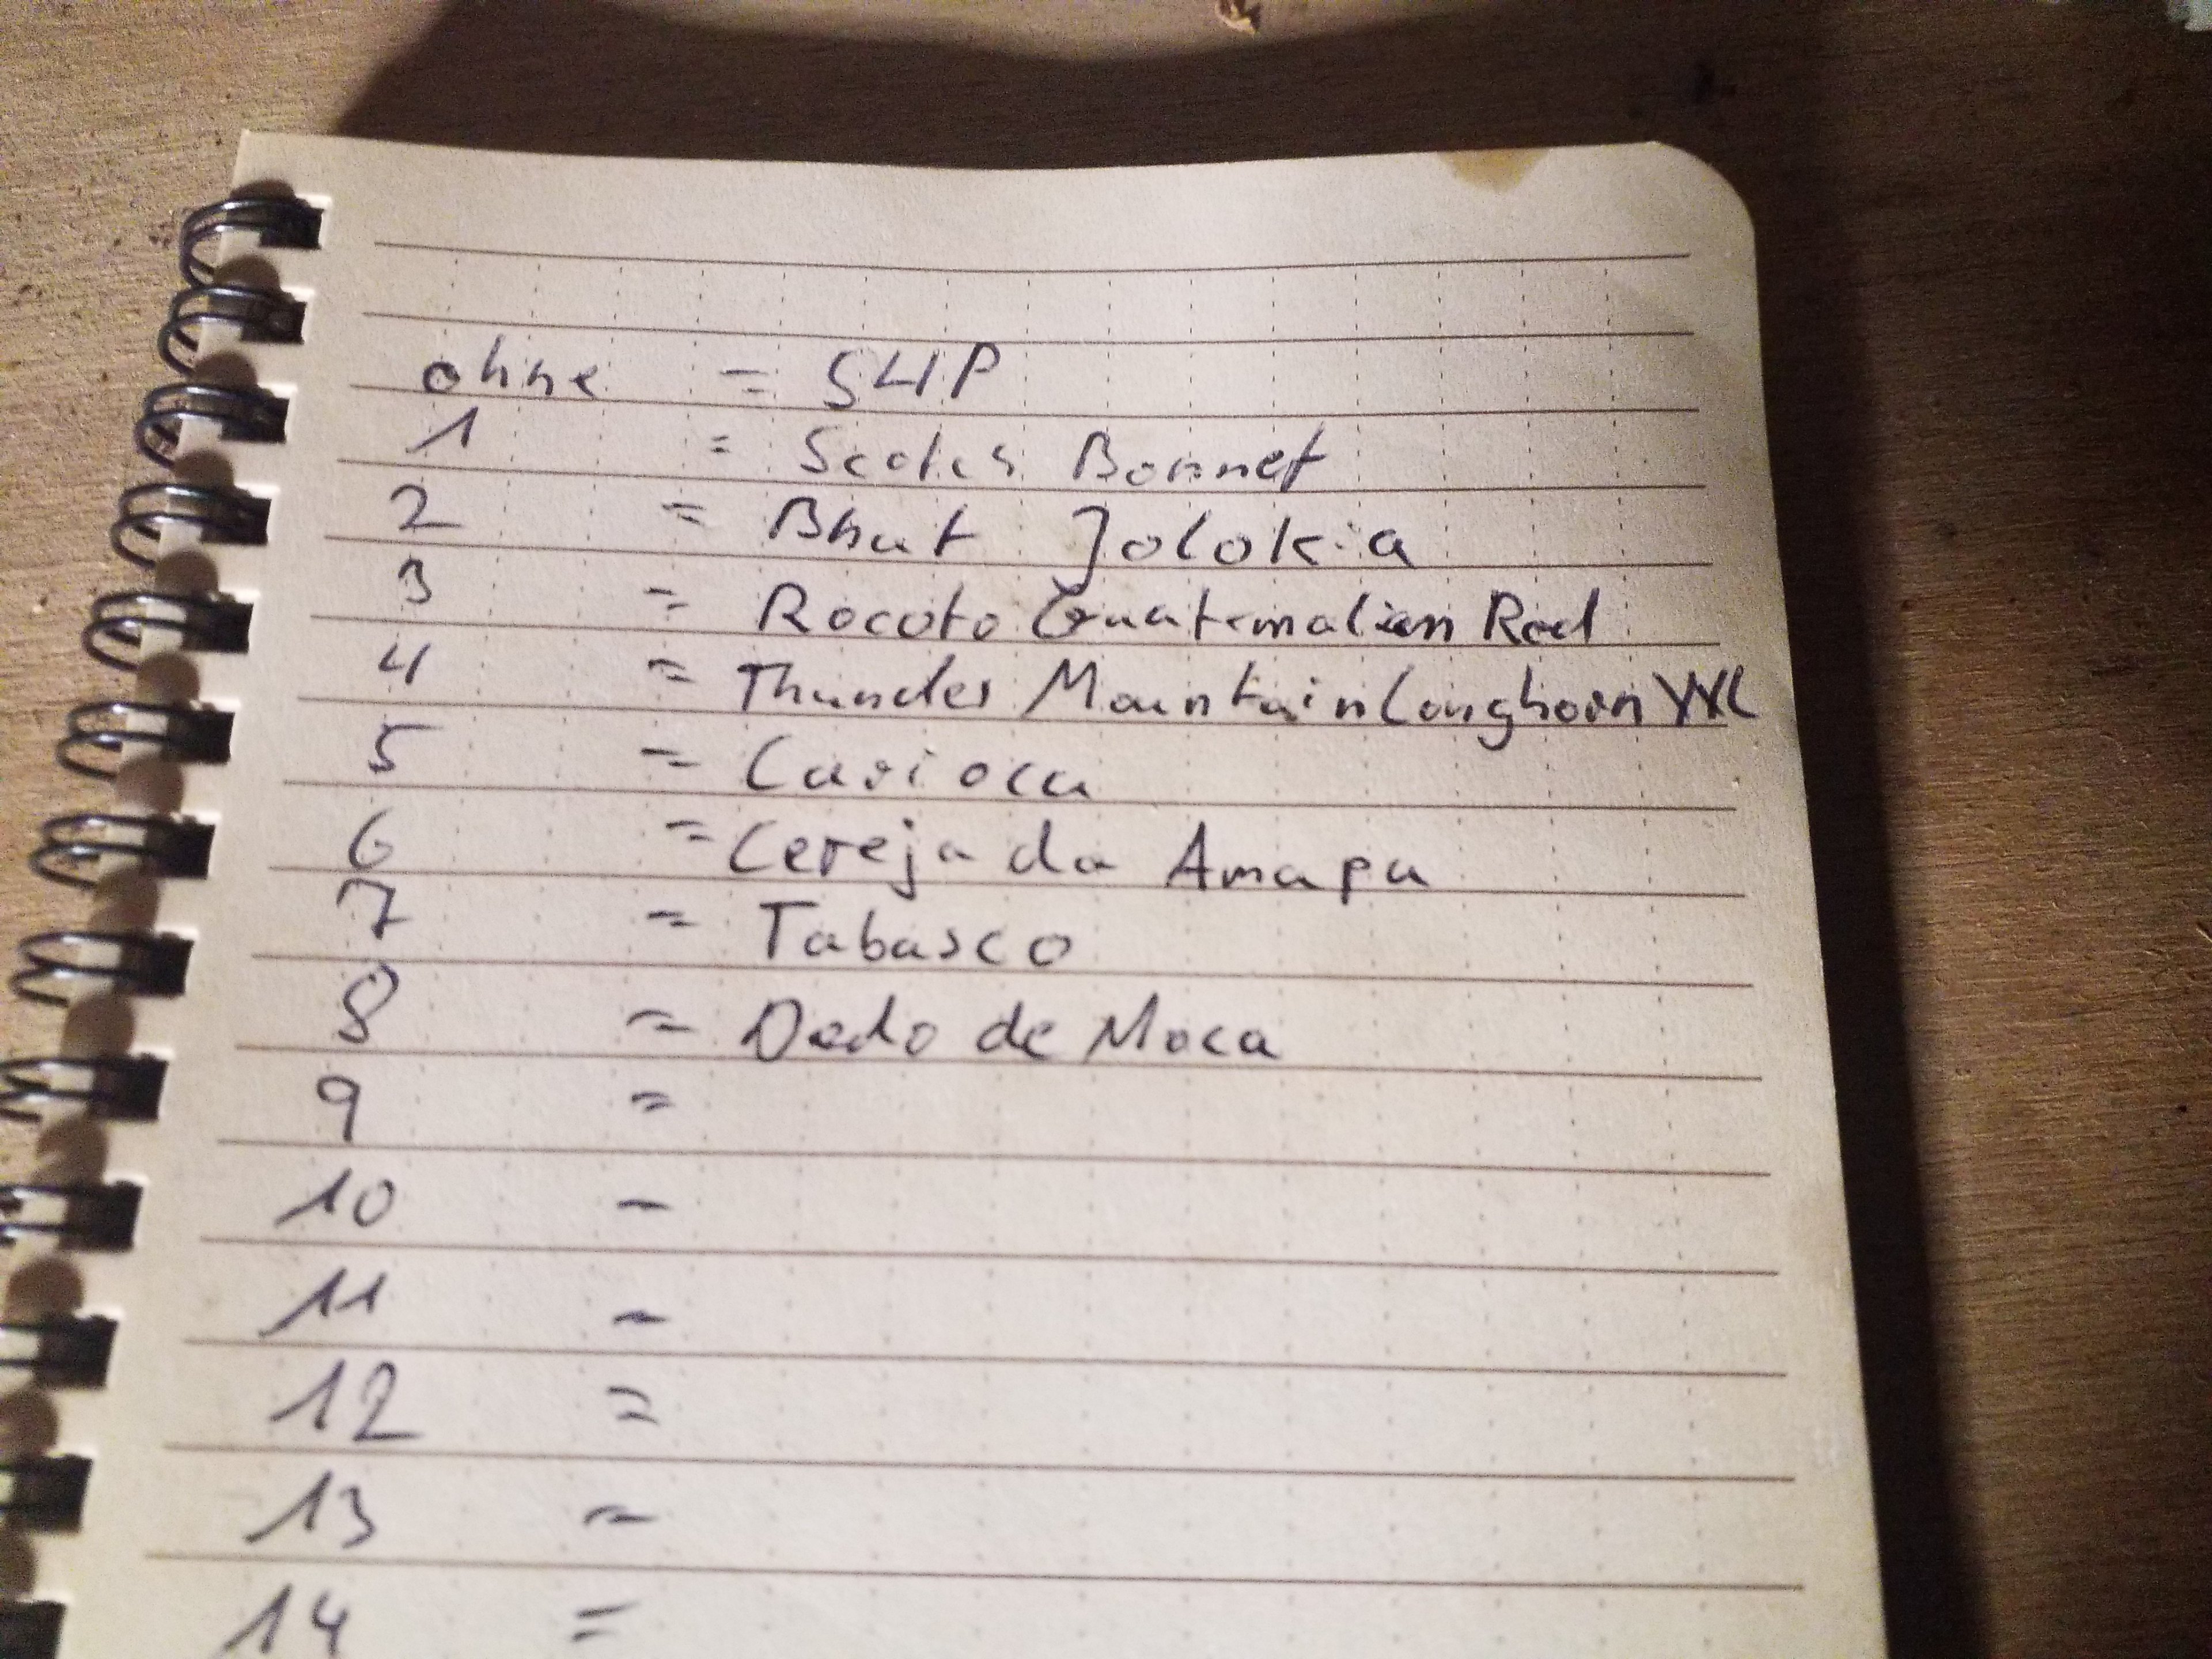 ohne = SHP
1 = Scotch Bonnet
2 = Bhut Jolokia
3 = Rocoto Guatemalian Red
4 = Thunder Mountain Longhorn XXL
5 = Carioca
6 = Cereja da Amapa
7 = Tabasco
8 = Dedo de Moca
9 =
10 -
11 -
12 =
13 =
14 =